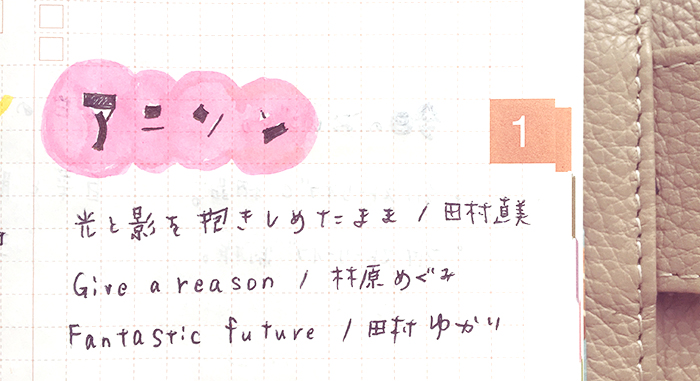 アニソン
1
光と影を抱きしめたまま / 田村直美
Give a reason / 林原めぐみ
Fantastic future / 田村ゆかり